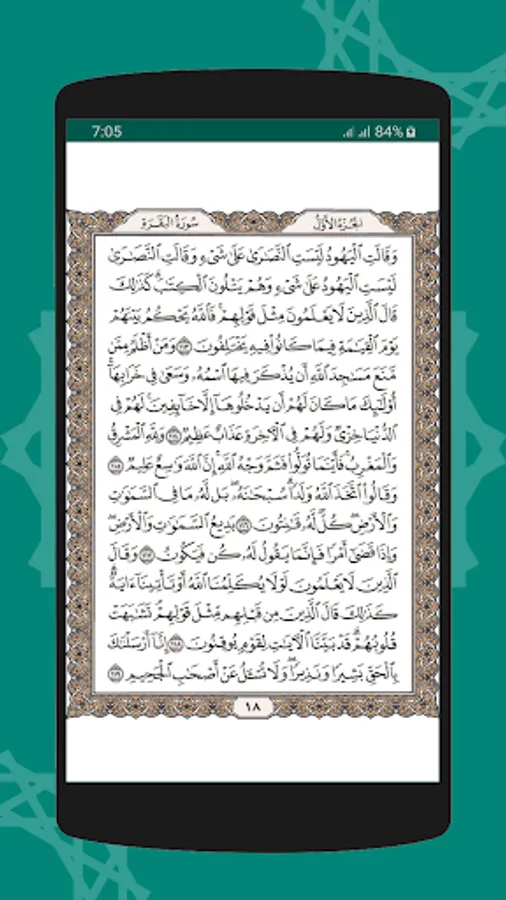 7:05 84%
الجزء الأول سورة البقرة
وَقَالَتِ ٱلۡيَهُودُ لَيۡسَتِ ٱلنَّصَٰرَىٰ عَلَىٰ شَيۡءٖ وَقَالَتِ ٱلنَّصَٰرَىٰ
لَيۡسَتِ ٱلۡيَهُودُ عَلَىٰ شَيۡءٖ وَهُمۡ يَتۡلُونَ ٱلۡكِتَٰبَۗ كَذَٰلِكَ
قَالَ ٱلَّذِينَ لَا يَعۡلَمُونَ مِثۡلَ قَوۡلِهِمۡۚ فَٱللَّهُ يَحۡكُمُ بَيۡنَهُمۡ
يَوۡمَ ٱلۡقِيَٰمَةِ فِيمَا كَانُواْ فِيهِ يَخۡتَلِفُونَ ١١٣ وَمَنۡ أَظۡلَمُ مِمَّن
مَّنَعَ مَسَٰجِدَ ٱللَّهِ أَن يُذۡكَرَ فِيهَا ٱسۡمُهُۥ وَسَعَىٰ فِي خَرَابِهَآۚ
أُوْلَٰٓئِكَ مَا كَانَ لَهُمۡ أَن يَدۡخُلُوهَآ إِلَّا خَآئِفِينَۚ لَهُمۡ فِي
ٱلدُّنۡيَا خِزۡيٞ وَلَهُمۡ فِي ٱلۡأٓخِرَةِ عَذَابٌ عَظِيمٞ ١١٤ وَلِلَّهِ ٱلۡمَشۡرِقُ
وَٱلۡمَغۡرِبُۚ فَأَيۡنَمَا تُوَلُّواْ فَثَمَّ وَجۡهُ ٱللَّهِۚ إِنَّ ٱللَّهَ وَٰسِعٌ عَلِيمٞ ١١٥
وَقَالُواْ ٱتَّخَذَ ٱللَّهُ وَلَدٗاۗ سُبۡحَٰنَهُۥۖ بَل لَّهُۥ مَا فِي ٱلسَّمَٰوَٰتِ
وَٱلۡأَرۡضِۖ كُلّٞ لَّهُۥ قَٰنِتُونَ ١١٦ بَدِيعُ ٱلسَّمَٰوَٰتِ وَٱلۡأَرۡضِۖ
وَإِذَا قَضَىٰٓ أَمۡرٗا فَإِنَّمَا يَقُولُ لَهُۥ كُن فَيَكُونُ ١١٧ وَقَالَ
ٱلَّذِينَ لَا يَعۡلَمُونَ لَوۡلَا يُكَلِّمُنَا ٱللَّهُ أَوۡ تَأۡتِينَآ ءَايَةٞۗ
كَذَٰلِكَ قَالَ ٱلَّذِينَ مِن قَبۡلِهِم مِّثۡلَ قَوۡلِهِمۡۘ تَشَٰبَهَتۡ
قُلُوبُهُمۡۗ قَدۡ بَيَّنَّا ٱلۡأٓيَٰتِ لِقَوۡمٖ يُوقِنُونَ ١١٨ إِنَّآ أَرۡسَلۡنَٰكَ
بِٱلۡحَقِّ بَشِيرٗا وَنَذِيرٗاۖ وَلَا تُسۡـَٔلُ عَنۡ أَصۡحَٰبِ ٱلۡجَحِيمِ ١١٩
١٨